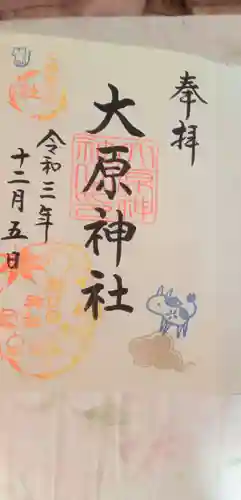 奉拝
大原神社
令和三年
十二月五日